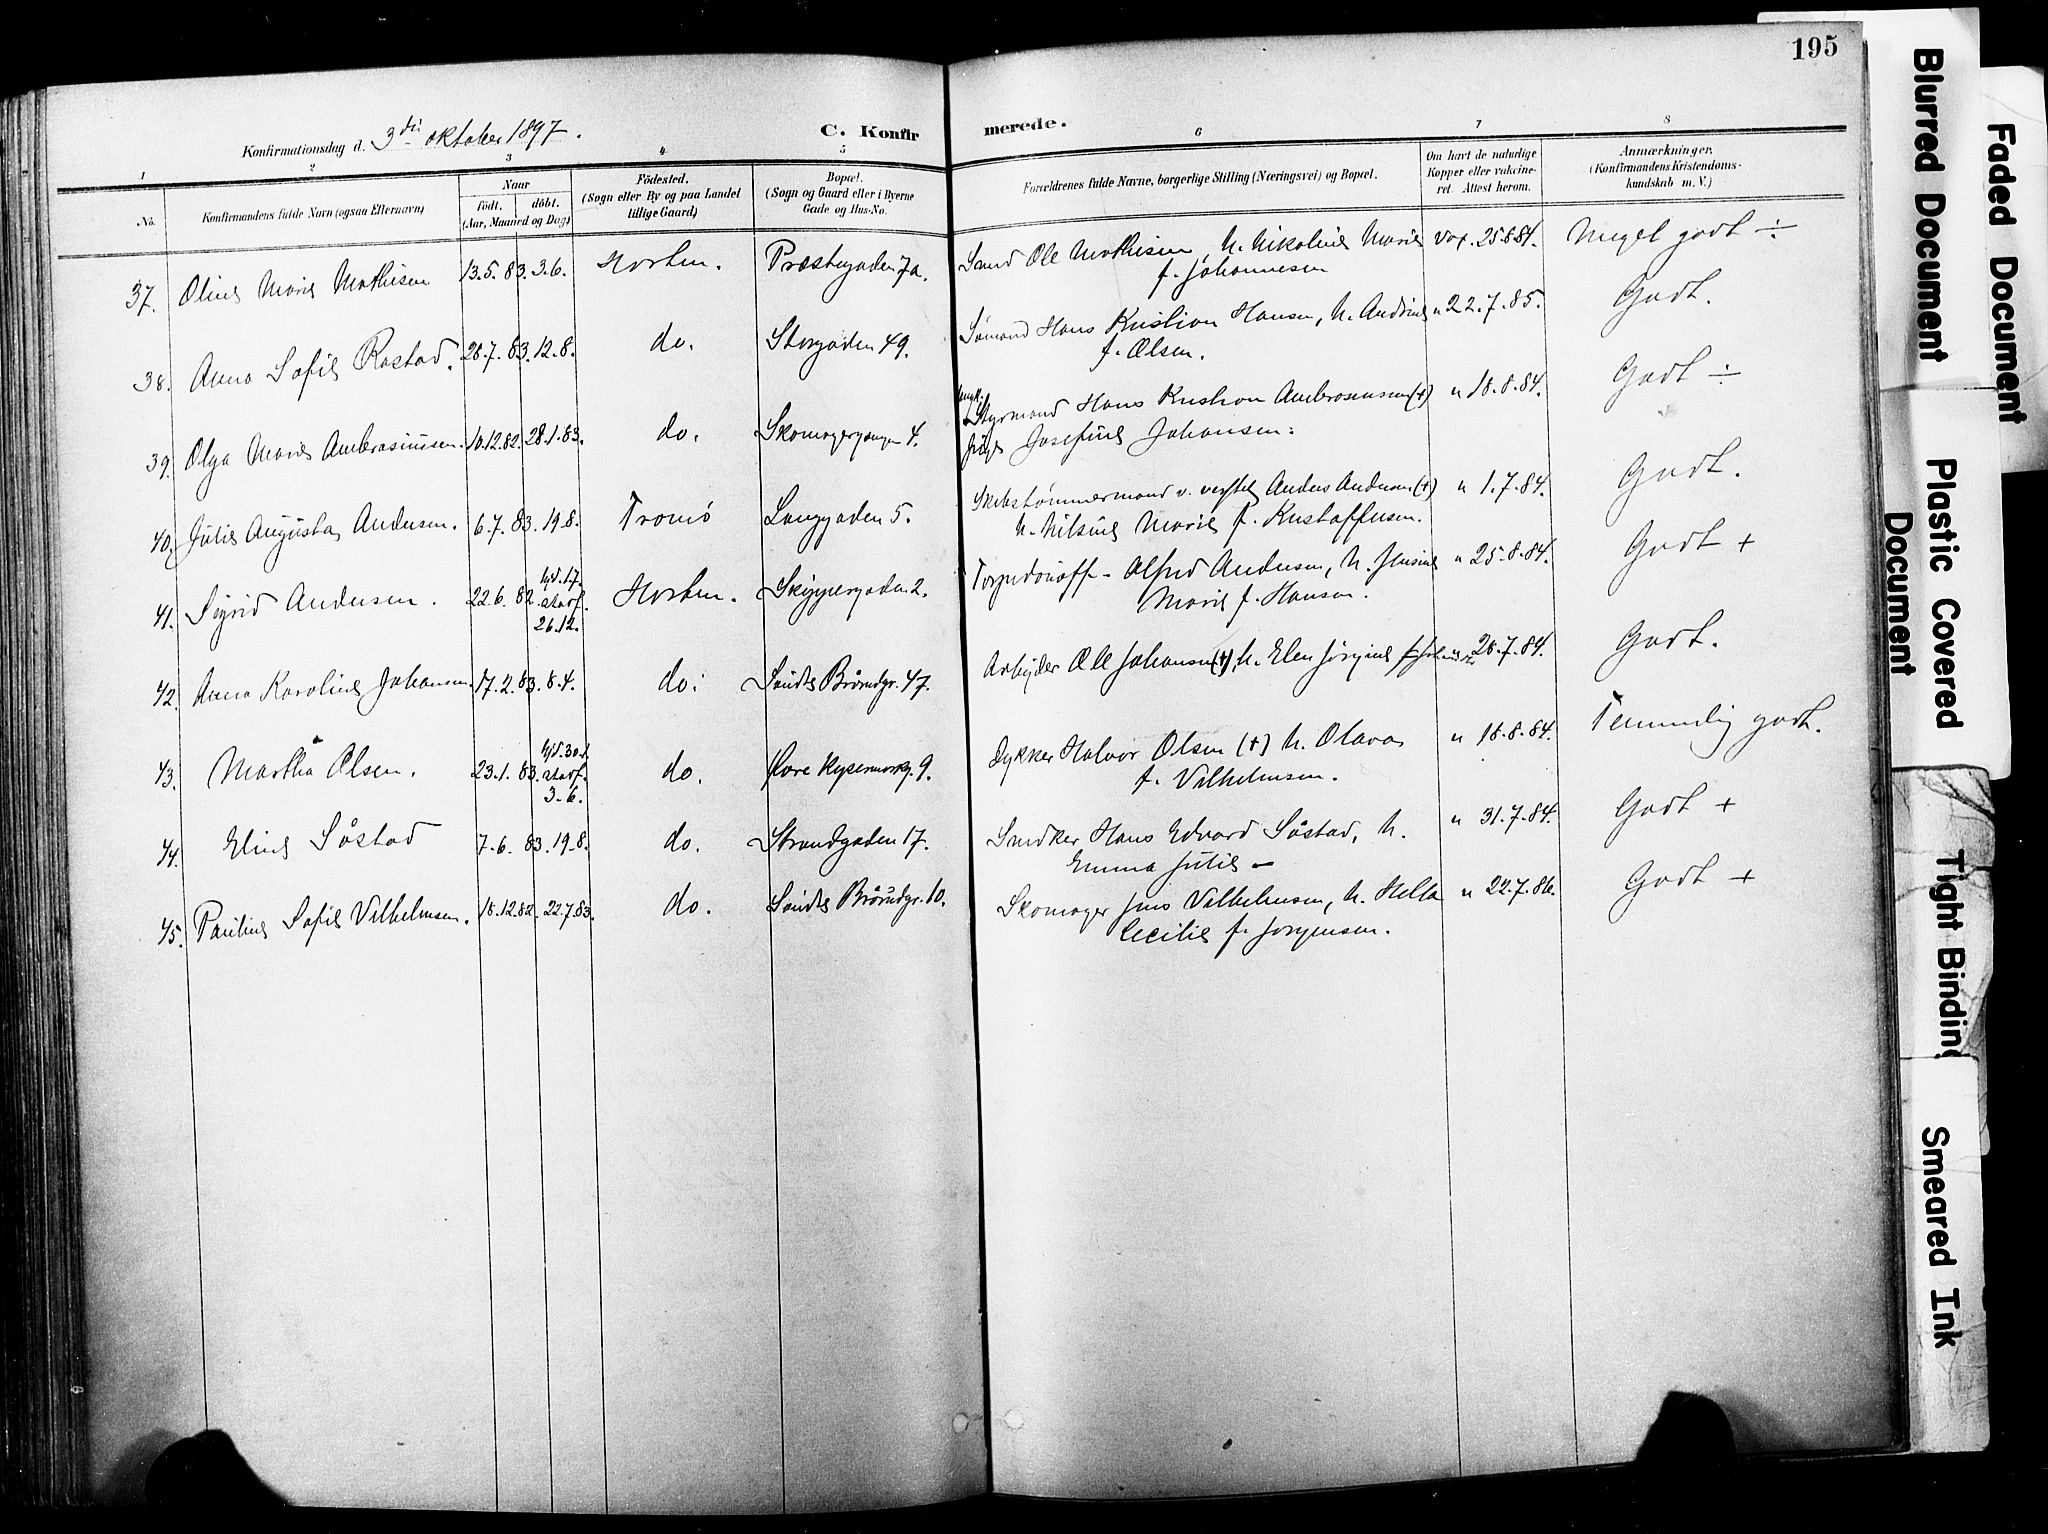 195
Konfirmationsdag d. 3die oktober 1897.
C. Konfirmerede.
1 2 3 4 5 6 7 8
No. Konfirmandens fulde Navn (ogsaa Efternavn) Naar født. døbt. (Aar, Maaned og Dag) Fødested. (Sogn eller By og paa Landet tillige Gaard) Bopæl. (Sogn og Gaard eller i Byerne Gade og Hus-No. Forældrenes fulde Navne, borgerlige Stilling (Næringsvei) og Bopæl. Om havt de naturlige Kopper eller vakcineret. Attest herom. Anmærkninger. (Konfirmandens Kristendomskundskab m. V.)
37. Oline Marie Mathisen 13.5.83. 3.6. Horten. Præstegaden 7a. Smed Ole Mathisen, h. Nikoline Marie Vax. 25.8.84. Meget godt ÷
f. Johannesen
38. Anna Sofie Rastad. 28.7.83. 12.8. do. Storgaden 49. Sømand Hans Kristian Hansen, h. Andrine " 22.7.85. Godt.
f. Olsen.
39. Olga Marie Ambrosiussen. 10.12.82. 28.1.83. do. Skomagergangen 4. Styrmand Hans Kristian Ambrosiussen (+) " 18.8.84. Godt ÷
Pige Josefine Johansen.
40. Julie Augusta Andersen. 6.7.83. 19.8. Tromø Langgaden 5. Skibstømmermand v. verftet Anders Andersen (+) " 1.7.84. Godt.
h. Nilsine Marie f. Kristoffersen.
41. Sigrid Andersen. 22.6.82. hjd. 17. Horten. Skippergaden 2. Alfred Andersen, h. Jensine " 25.8.84. Godt +
26.12. Marie f. Hansen.
42. Anna Karoline Johansen. 17.2.83. 8.4. do. Søndre Brårudgr. 47. Arbejder Ole Johansen (+), h. Elen Jørgine " 28.7.84. Godt.
43. Martha Olsen. 23.1.83. hjd. 30. do. 9. Dykker Halvor Olsen (+) h. Olava " 18.8.84. Temmelig godt.
3.6. f. Vilhelmsen.
44. Eline Søstad 7.6.83. 19.8. do. Strandgaden 17. Snedker Hans Edvard Søstad, h. " 31.7.84. Godt +
Emma Julie —
45. Pauline Sofie Vilhelmsen. 18.12.82. 22.7.83. do. Søndre Brårudgr. 10. Skomager Jens Vilhelmsen, h. Hella " 22.7.86. Godt +
Cecilie f. Jørgensen.
Blurred Document
Faded Document
Plastic Covered Document
Tight Binding
Smeared Ink